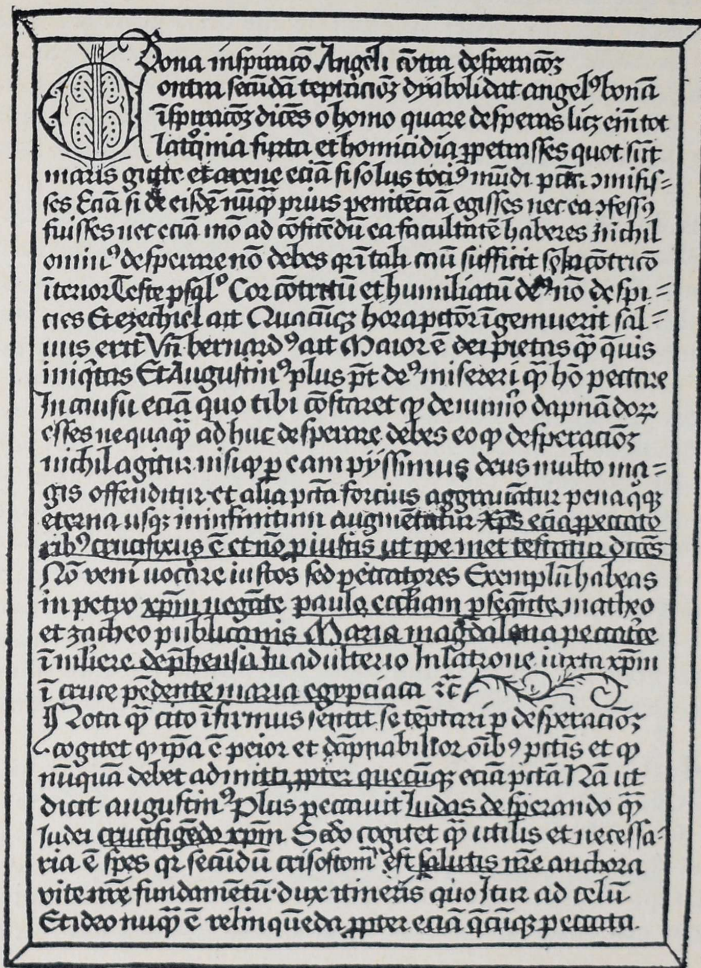 Bona inspiracō Angeli cōtra desperacōꝫ
Contra secūdā teptaciōꝫ dyaboli dat angelꝰ bonā
īspiracōꝫ dicēs o homo quare desperas licꝫ eīn tot
latꝛōinia furta et homicidia ꝑpetrasses quot sūt
maris gutte et arene eciā si solus tociꝰ mūdi pctā ꝯmisis⸗
ses Eciā si de eisdē nūqꝫ prius penitēciā egisses nec ea ꝯfessꝰ
fuisses nec eciā mō ad cōfitēdū ea facultatē haberes Nichil
ominꝰ desperare nō debes qꝛ ī tali casu sufficit sola cōtricō
īterior Teste psalꝰ Cor cōtritū et humiliatū deꝰ nō despi⸗
cies Et ezechiel ait Quacūqꝫ hora pctōr īgemuerit sal⸗
uus erit Vn̄ bernardꝰ ait Maior ē dei pietas qꝫ quis
iniqͥtas Et Augustinꝰ plus pt̄ deꝰ misereri qꝫ hō peccare
In casu eciā quo tibi cōstaret ꝙ de numͦo dapnādoꝝ
esses nequaqꝫ ad huc desperare debes eo ꝙ desperaciōꝫ
nichil agitur nisi ꝙ ꝑ eam pÿssimus deus multo ma⸗
gis offenditur et alia pctā forcius aggrauātur pena qͦqꝫ
eterna usqꝫ in infinitum augmētatur Xp̄s eciā ꝓ peccato
ribꝰ crucifixus ē et nō ꝓ iustis ut ip̄e met testatur dicēs
Nō veni uocare iustos sed peccatores Exemplū habeas
in petro xp̄m negāte paulo eccliam ꝑseqͣnte matheo
et zacheo publicanis Maria magdalena peccatͥce
ī muliere dep̄hensa In adulterio In latrone iuxta xp̄m
ī cruce pēdente maria egypciaca ⁊c̄
Nota qꝫ cito īfirmus sentit se tēptari ꝑ desperaciōꝫ
cogitet ꝙ ip̄a ē peior et dāpnabilior oībꝰ pctis et ꝙ
nūquā debet admitti ꝓpter quecūqꝫ eciā pctā Nā ut
dicit augustinꝰ Plus peccauit Iudas desperando qꝫ
Iudei crucifigēdo xp̄m Scdo cogitet qꝫ utilis et necessa⸗
ria ē spes qꝛ secūdū crisostomͥ est salutis nr̄e anchora
vite nr̄e fundamētū dux itineris quo Itur ad celū
Et ideo nūqꝫ ē relinquēda ꝓpter eciā qͣcūqꝫ peccata